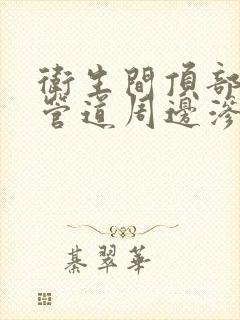 衛生間頂部
管道周邊滲
綦翠華